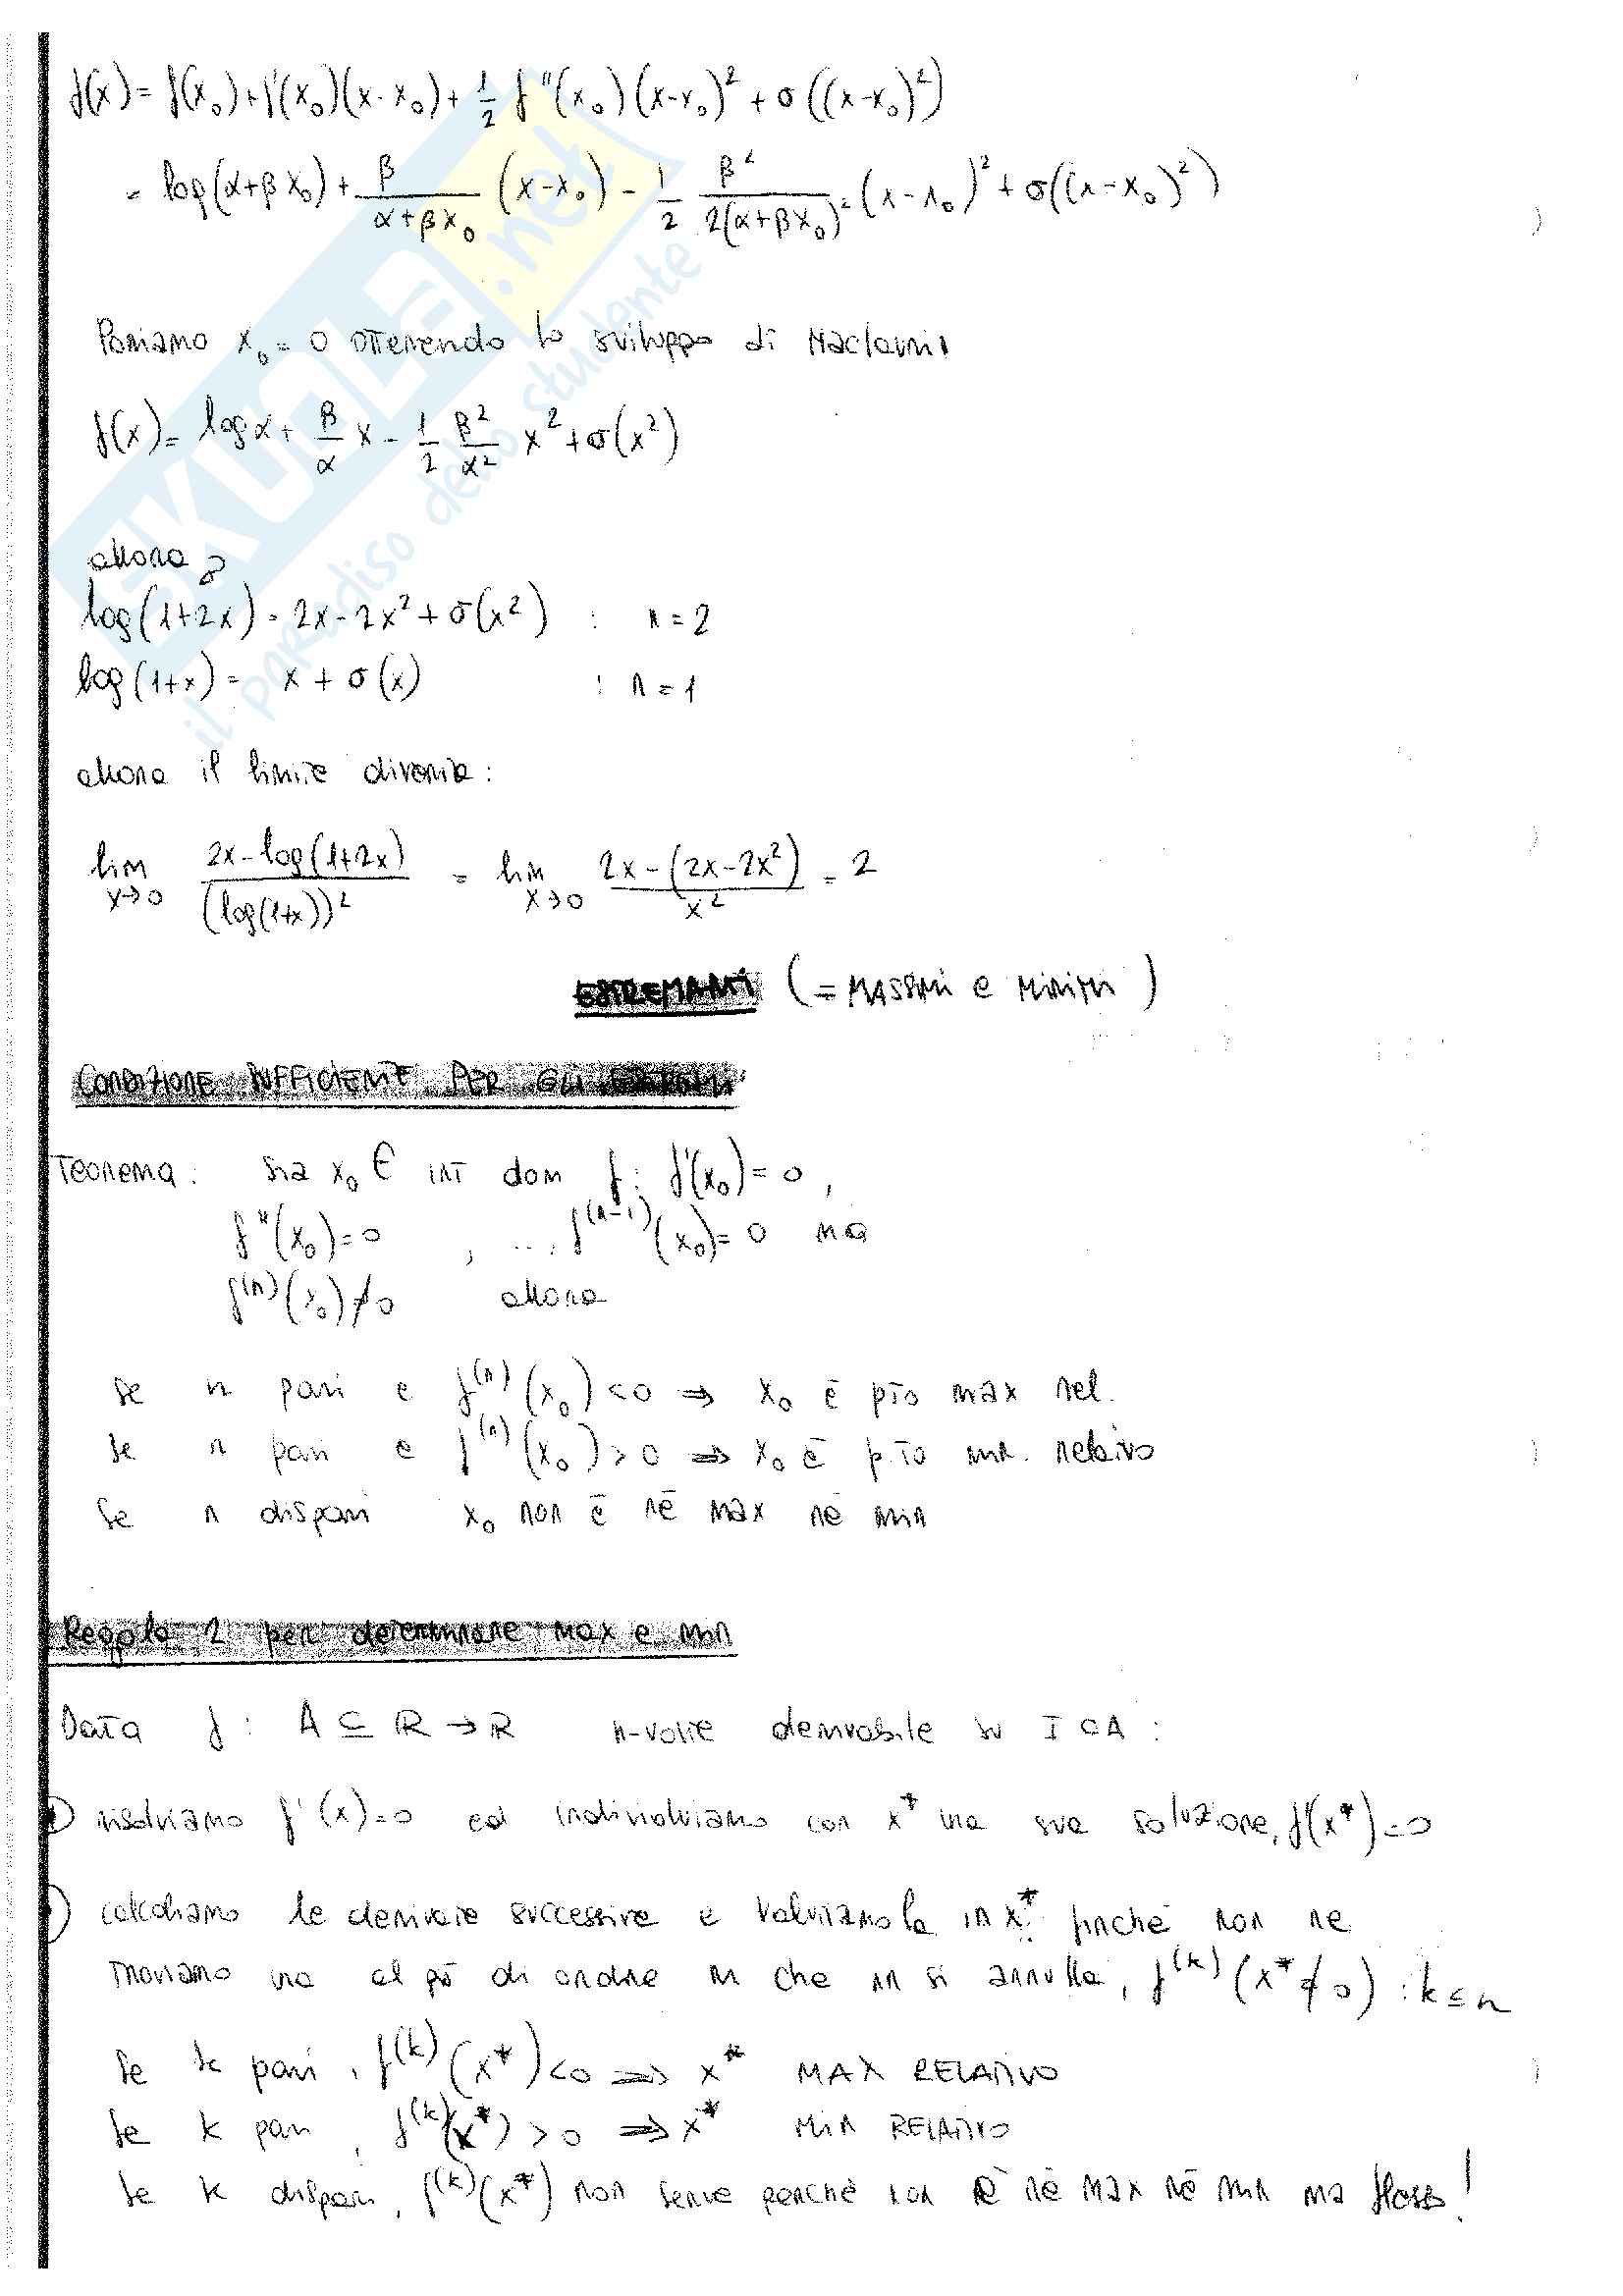 f(x) = f(x₀) + f'(x₀)(x-x₀) + 1/2 f"(x₀)(x-x₀)² + σ((x-x₀)²)
= log(α+βx₀) + β/(α+βx₀) (x-x₀) - 1/2 β²/(2(α+βx₀)²) (x-x₀)² + σ((x-x₀)²)
Poniamo x₀ = 0 ottenendo lo sviluppo di Maclaurin
f(x) = log α + β/α x - 1/2 β²/α² x² + σ(x²)
allora
log(1+2x) = 2x - 2x² + σ(x²) : n = 2
log(1+x) = x + σ(x) : n = 1
allora il limite diventa:
lim x→0 (2x - log(1+2x))/(log(1+x))² = lim x→0 (2x - (2x - 2x²))/x² = 2
ESTREMANTI (= MASSIMI e MINIMI)
CONDIZIONE SUFFICIENTE PER GLI
Teorema: sia x₀ ∈ int dom f : f'(x₀) = 0,
f"(x₀) = 0 , ..., f⁽ⁿ⁻¹⁾(x₀) = 0 ma
f⁽ⁿ⁾(x₀) ≠ 0 allora
se n pari e f⁽ⁿ⁾(x₀) < 0 ⇒ x₀ è pto max rel.
se n pari e f⁽ⁿ⁾(x₀) > 0 ⇒ x₀ è p.to min. relativo
se n dispari x₀ non è né max né min
Regola 2 per determinare max e min
Data f : A ⊆ ℝ → ℝ n-volte derivabile su I ⊂ A :
risolviamo f'(x) = 0 ed individuiamo con x* una sua soluzione, f'(x*) = 0
calcoliamo le derivate successive e valutiamola in x* finché non ne
troviamo una al più di ordine n che nn si annulla, f⁽ᵏ⁾(x* ≠ 0) : k ≤ n
se k pari, f⁽ᵏ⁾(x*) < 0 ⇒ x* MAX RELATIVO
se k pari, f⁽ᵏ⁾(x*) > 0 ⇒ x* MIN RELATIVO
se k dispari, f⁽ᵏ⁾(x*) non serve perché non è né max né min ma flesso!
SKUOLA.net
il paradiso dello studente